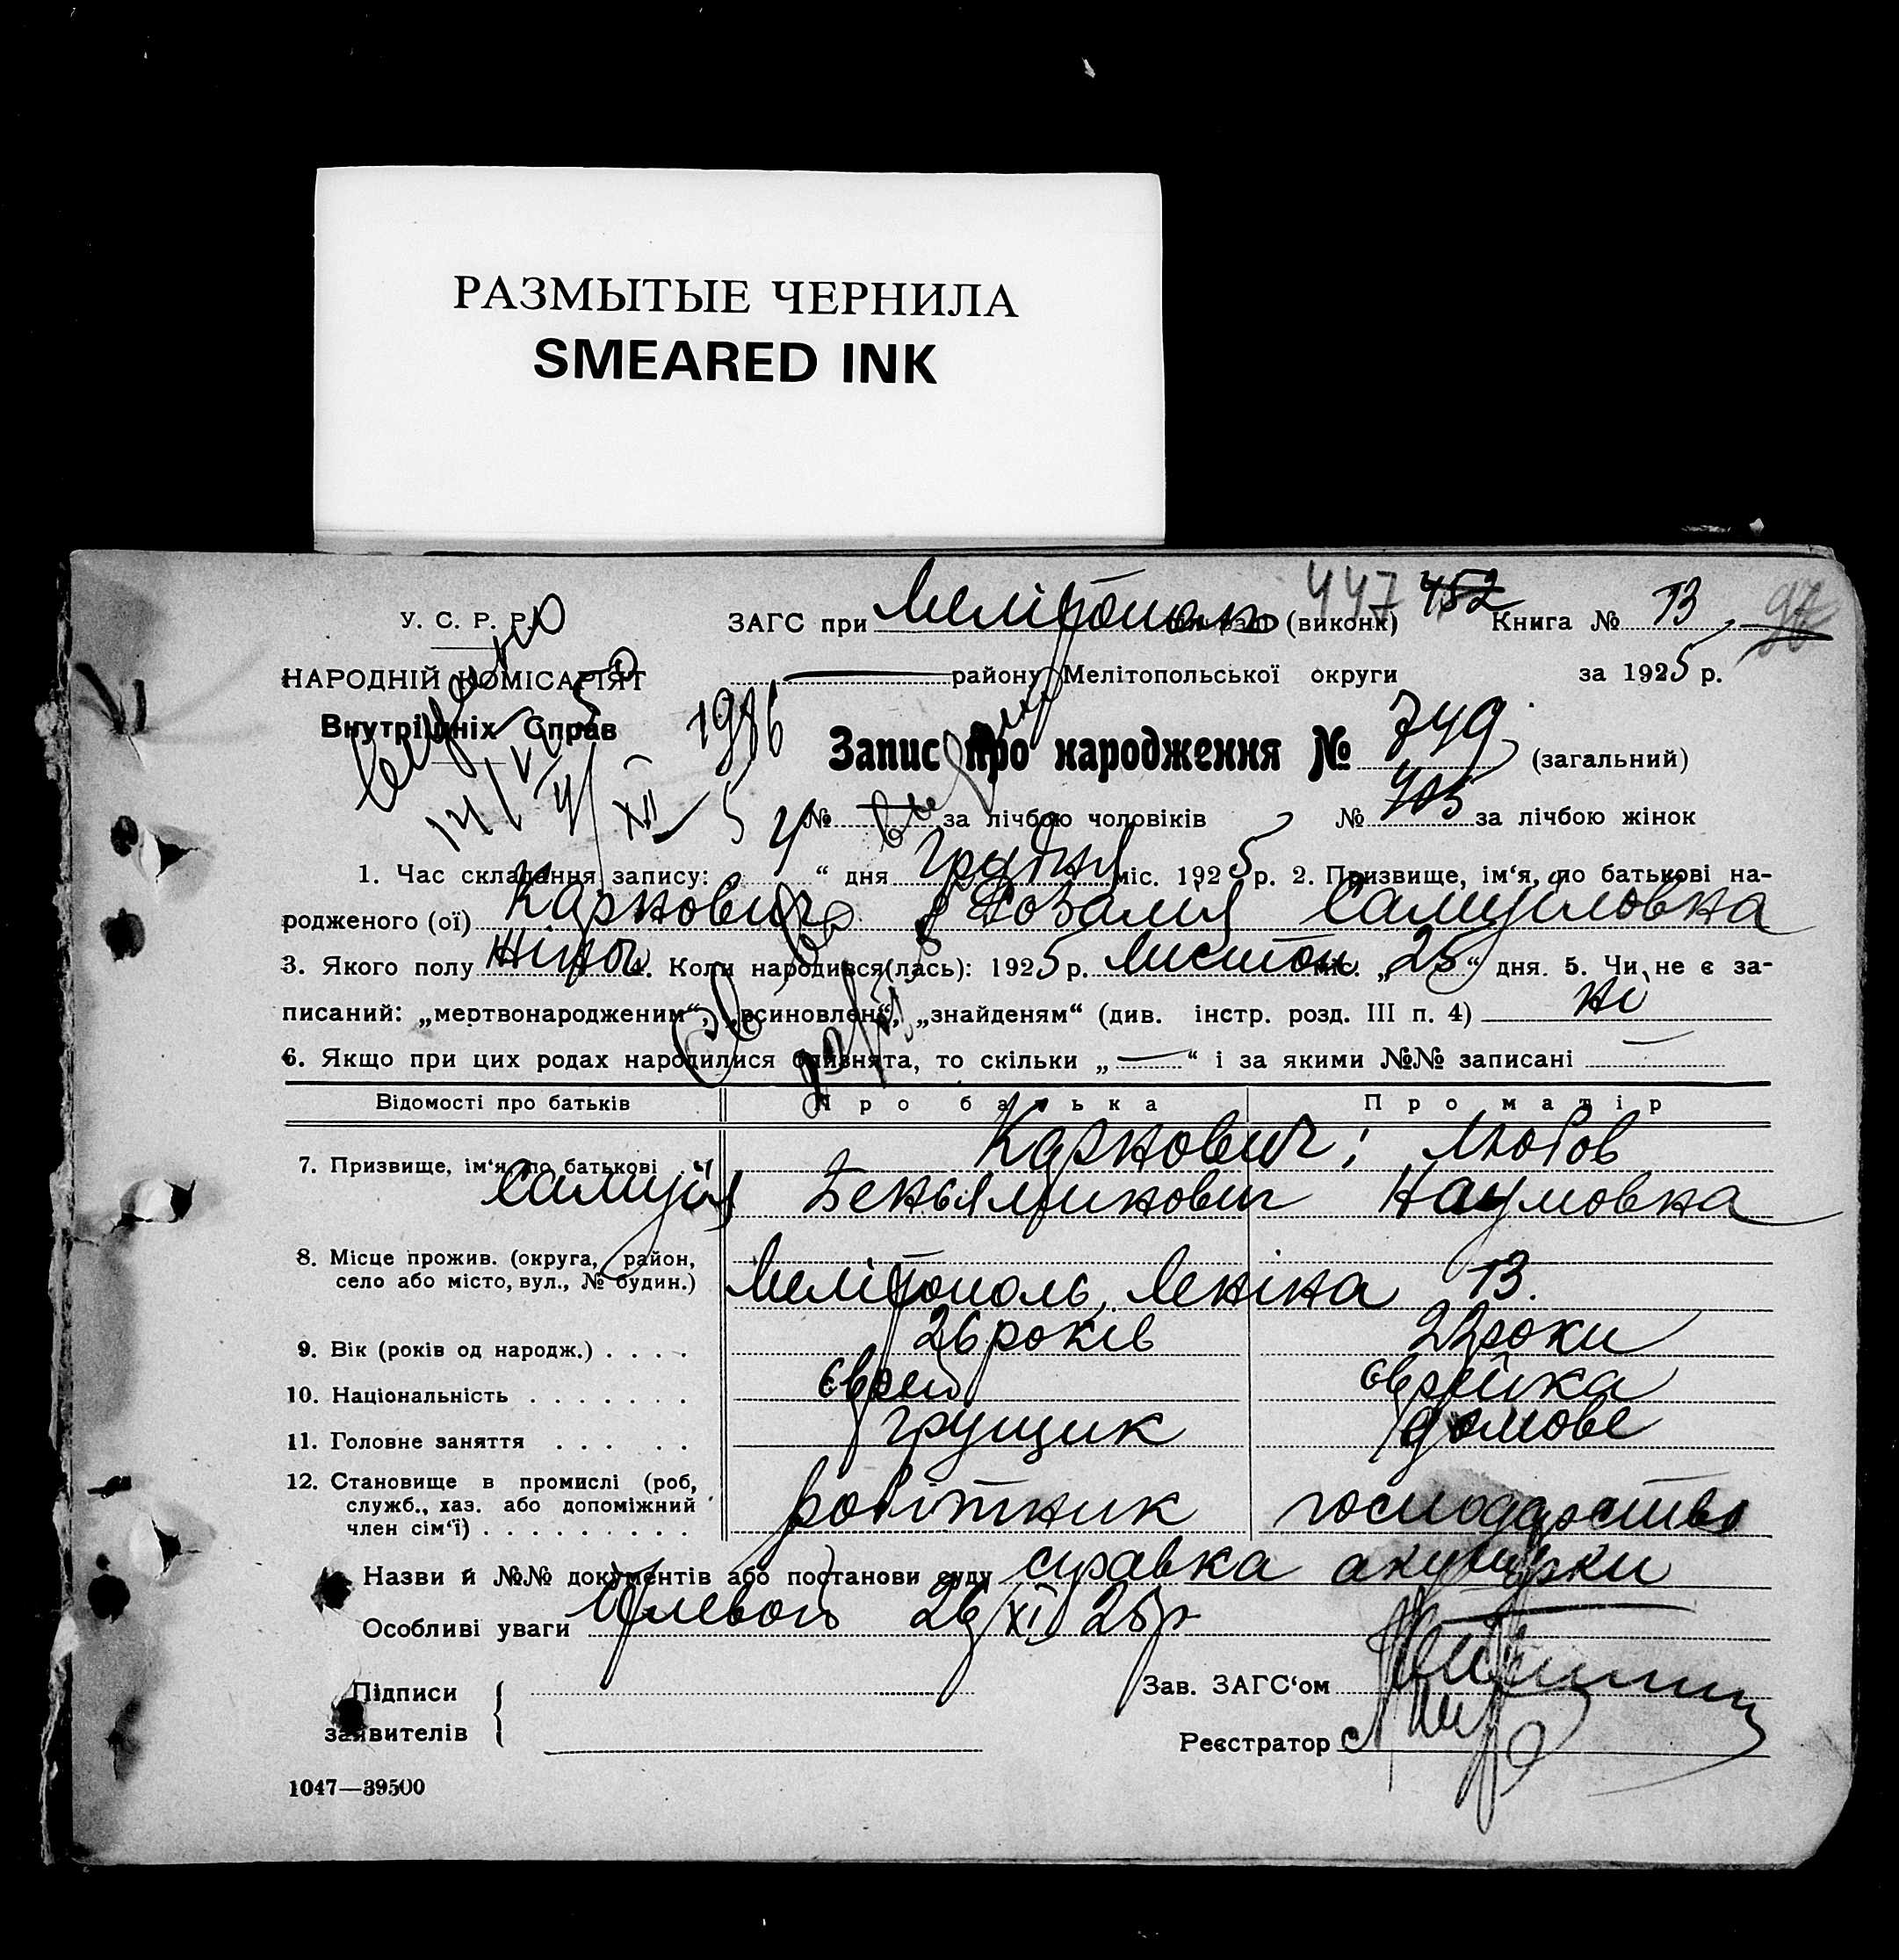 РАЗМЫТЫЕ ЧЕРНИЛА
SMEARED INK
447 452
У. С. Р. Р. ЗАГС при (виконк) Книга № 13
НАРОДНІЙ КОМІСАРІЯТ району Мелітопольської округи за 1925 р.
Внутрішніх Справ
1986
Запис про народження № 749 (загальний)
№ за лічбою чоловіків № за лічбою жінок
1. Час складання запису: „4“ дня Грудня міс. 1925 р. 2. Призвище, ім‘я, по батькові на-
родженого (ої) Карнович Розалия Самуиловна
3. Якого полу жіноч. 4. Коли народився(лась): 1925 р. Листоп міс. „25“ дня. 5. Чи не є за-
писаний: „мертвонародженим“, „всиновлен“, „знайденям“ (див. інстр. розд. III п. 4) ні
6. Якщо при цих родах народилися близнята, то скільки „—“ і за якими №№ записані —
Відомості про батьків Про батька Про матір
7. Призвище, ім‘я, по батькові Карнович; Любов
Самуїл Беньяминович Наумовна
8. Місце прожив. (округа, район,
село або місто, вул., № будин.) Мелітополь, Леніна 13.
9. Вік (років од народж.) . . . . 26 років 22 роки
10. Національність . . . . . . . єврей єврейка
11. Головне заняття . . . . . грущик домове
12. Становище в промислі (роб,
служб., хаз. або допоміжний
член сім‘ї) . . . . . . . . . робітник господарство
Назви й №№ документів або постанови суду справка акушерки
Особливі уваги 26/XI 25 р
Підписи Зав. ЗАГС‘ом
заявителів Реєстратор
1047—39500